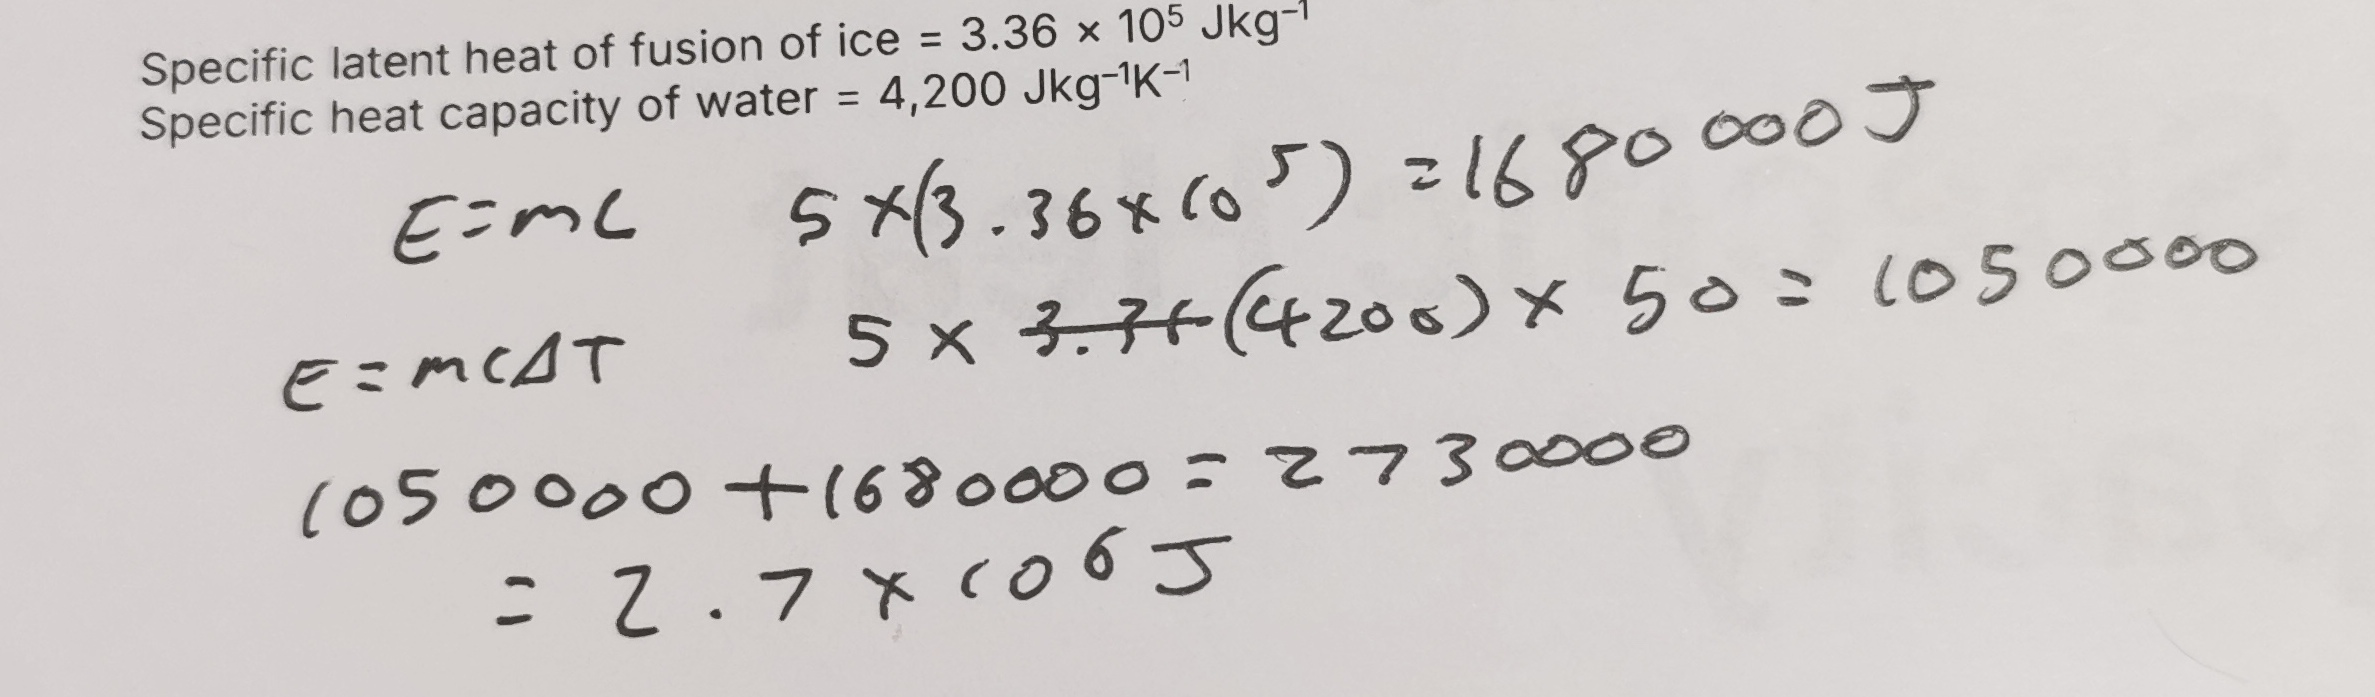 Specific latent heat of fusion of ice = 3.36 × 10⁵ Jkg⁻¹
Specific heat capacity of water = 4,200 Jkg⁻¹K⁻¹
E=mL 5×(3.36×10⁵) =1680000J
E=mcΔT 5× ~~3.36~~ (4200)× 50= 1050000
1050000+1680000=2730000
=2.7×10⁶J